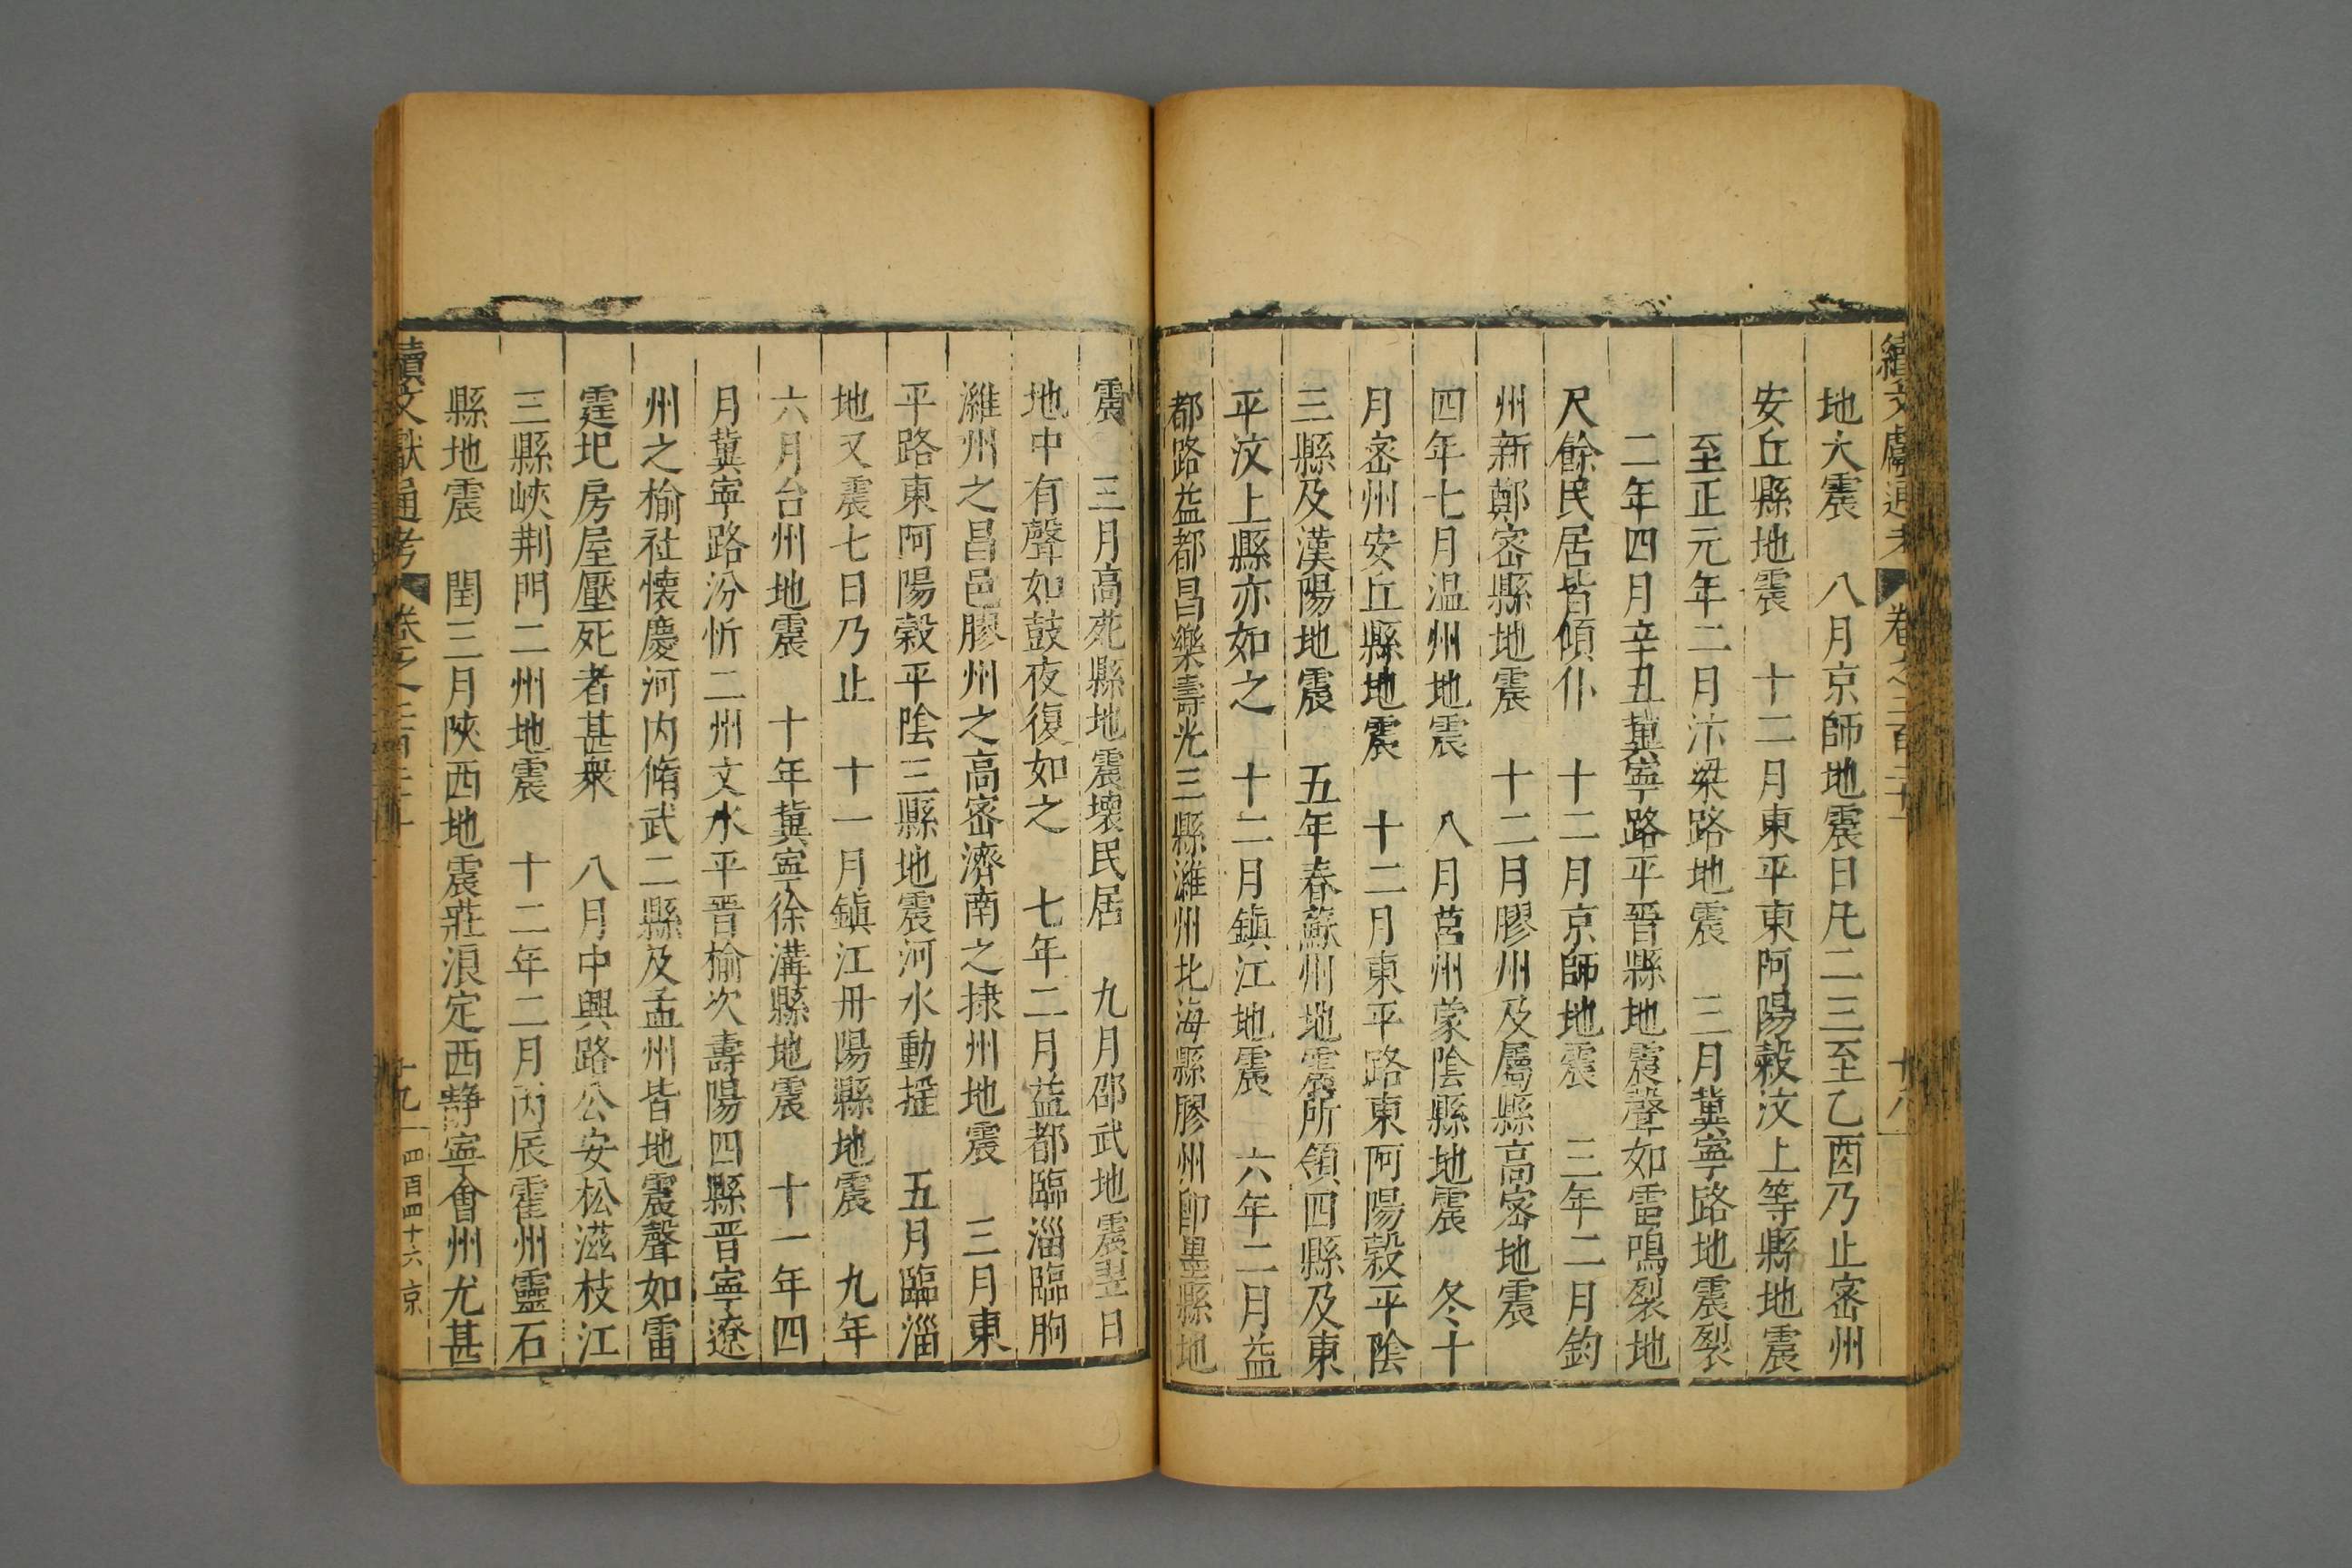 續文獻通考 卷之二百二十一 十八
地大震 八月京師地震日凡二三至乙酉乃止密州
安丘縣地震 十二月東平東阿陽榖汶上等縣地震
至正元年二月汴梁路地震 三月冀寧路地震裂
二年四月辛丑冀寧路平晉縣地震聲如雷鳴裂地
尺餘民居皆傾仆 十二月京師地震 三年二月鈞
州新鄭密縣地震 十二月膠州及屬縣高密地震
四年七月温州地震 八月莒州蒙陰縣地震 冬十
月密州安丘縣地震 十二月東平路東阿陽榖平陰
三縣及漢陽地震 五年春蘇州地震所領四縣及東
平汶上縣亦如之 十二月鎮江地震 六年二月益
都路益都昌樂壽光三縣濰州北海縣膠州卽墨縣地
震 三月高苑縣地震壞民居 九月邵武地震翌日
地中有聲如鼓夜復如之 七年二月益都臨淄臨朐
濰州之昌邑膠州之高密濟南之棣州地震 三月東
平路東阿陽榖平陰三縣地震河水動搖 五月臨淄
地又震七日乃止 十一月鎮江丹陽縣地震 九年
六月台州地震 十年冀寧徐溝縣地震 十一年四
月冀寧路汾忻二州文水平晉榆次壽陽四縣晋寧遼
州之榆社懷慶河内脩武二縣及孟州皆地震聲如雷
霆圯房屋壓死者甚衆 八月中興路公安松滋枝江
三縣峽荆門二州地震 十二年二月丙辰霍州靈石
縣地震 閏三月陝西地震莊浪定西靜寧會州尤甚
續文獻通考 卷之二百二十一 十九 四百四十六 京